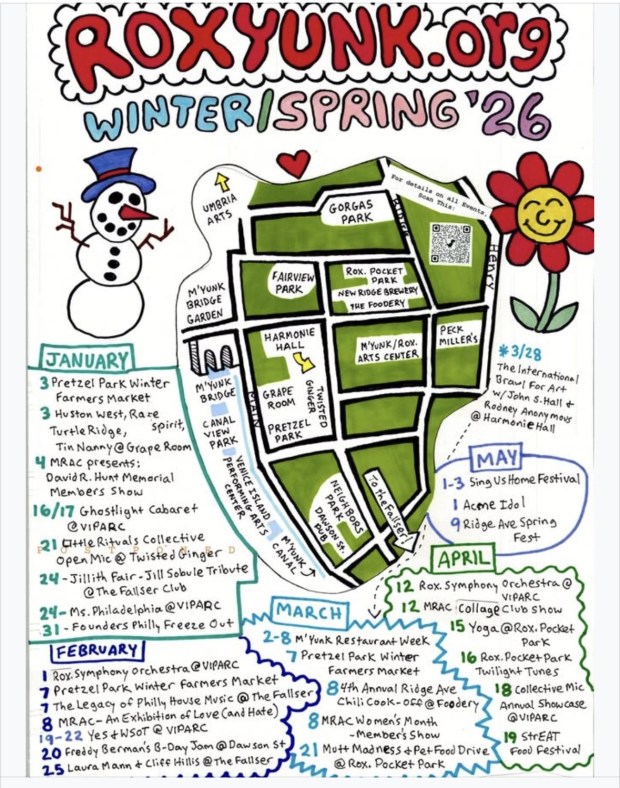 ROXYUNK.org
WINTER/SPRING '26
For details on all Events,
Scan This:
UMBRIA
ARTS
GORGAS
PARK
RIDGE
HENRY
M'YUNK
BRIDGE
GARDEN
FAIRVIEW
PARK
ROX. POCKET
PARK
NEW RIDGE BREWERY
THE FOODERY
HARMONIE
HALL
M'YUNK/ROX.
ARTS CENTER
PECK
MILLER'S
M'YUNK
BRIDGE
MAIN
GRAPE
ROOM
TWISTED
GINGER
PRETZEL
PARK
CANAL
VIEW
PARK
VENICE ISLAND
PERFORMING ARTS
CENTER
NEIGHBORS
PARK
DAWSON ST.
PUB
To the Fallser
M'YUNK
CANAL
JANUARY
3 Pretzel Park Winter
Farmers Market
3 Huston West, Raze
Turtle Ridge, Spirit,
Tin Nanny @ Grape Room
4 MRAC presents:
David R. Hunt Memorial
Members Show
16/17 Ghostlight Cabaret
@VIPARC
21 Little Rituals Collective
POSTPONED
Open Mic @ Twisted Ginger
24 - Jillith Fair - Jill Sobule Tribute
@ The Fallser Club
24 - Ms. Philadelphia @ VIPARC
31 - Founders Philly Freeze Out
FEBRUARY
1 Rox. Symphony Orchestra @ VIPARC
7 Pretzel Park Winter Farmers Market
7 The Legacy of Philly House Music @ The Fallser
8 MRAC - An Exhibition of Love (and Hate)
19-22 Yes & WSOT @ VIPARC
20 Freddy Berman's B-Day Jam @ Dawson St
25 Laura Mann & Cliff Hillis @ The Fallser
MARCH
2-8 M'Yunk Restaurant Week
7 Pretzel Park Winter
Farmers Market
8 4th Annual Ridge Ave
Chili Cook-off @ Foodery
8 MRAC Women's Month
- Member's Show
21 Mutt Madness & Pet Food Drive
@ Rox. Pocket Park
*3/28
The International
Brawl For Art
w/ John S. Hall &
Rodney Anonymous
@ Harmonie Hall
APRIL
12 Rox. Symphony Orchestra @
VIPARC
12 MRAC Collage Club Show
15 Yoga @ Rox. Pocket
Park
16 Rox. Pocket Park
Twilight Tunes
18 Collective Mic
Annual Showcase
@VIPARC
19 StrEAT
Food Festival
MAY
1-3 Sing Us Home Festival
1 Acme Idol
9 Ridge Ave Spring
Fest